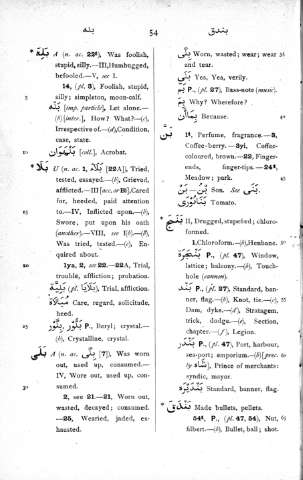 بله
54
بندق
بَلِهَ A (n. ac. 22²), Was foolish,
stupid, silly.—III, Humbugged,
befooled.—V, see I.
14, (pl. 3), Foolish, stupid,
silly; simpleton, moon-calf.
بَلْهَ [imp. particle], Let alone.—
(b)[inter.], How? What?—(c),
Irrespective of.—(d), Condition,
case, state.
بَهْلَوَان [coll.], Acrobat.
U (n. ac. 1, بَلَاء [22A]), Tried,
tested, essayed—(b), Grieved,
afflicted.—III [acc. or B], Cared
for, heeded, paid attention
to.—IV, Inflicted upon.—(b),
Swore, put upon his oath
(another).—VIII, see I(b).—(B),
Was tried, tested.—(c), En-
quired about.
1ya, 2, see 22.—22A, Trial,
trouble, affliction; probation.
بَلِيَّة (pl. بَلَايَا), Trial, affliction.
مُبَالَاة Care, regard, solicitude,
heed.
بِلَّوْر P., Beryl; crystal.—
(b), Crystalline, crystal.
بَلِيَ A (n. ac. [7] بِلًى), Was worn
out, used up, consumed.—
IV, Wore out, used up, con-
sumed.
2, see 21.—21, Worn out,
wasted, decayed; consumed.
—25, Wearied, jaded, ex-
hausted.
Worn, wasted; wear; wear
and tear.
بَلَى Yes, Yea, verily.
P., (pl. 27), Bass-note (music).
Why? Wherefore?
Because.
بَنّ
1ᵗ, Perfume, fragrance.—3,
Coffee-berry.—3yi, Coffee-
coloured, brown.—22, Finger-
ends, finger-tips.—24ᵗ,
Meadow; park.
Son. See
Tomato.
بَنَّجَ II, Drugged, stupefied; chloro-
formed.
1, Chloroform.—(b), Henbane.
P., (pl. 47), Window,
lattice; balcony.—(b), Touch-
hole (cannon).
بَنْد P., (pl. 27), Standard, ban-
ner, flag.—(b), Knot, tie.—(c),
Dam, dyke.—(d), Stratagem,
trick, dodge.—(e), Section,
chapter.—(f), Legion.
بَنْدَر P., (pl. 47), Port, harbour,
sea-port; emporium.—(b) [prec.
by شَاه], Prince of merchants:
syndic, mayor.
بَنْدَيْرَة Standard, banner, flag.
بَنْدَقَ Made bullets, pellets.
54ᵗ, P., (pl. 47, 54), Nut,
filbert.—(b), Bullet, ball; shot.